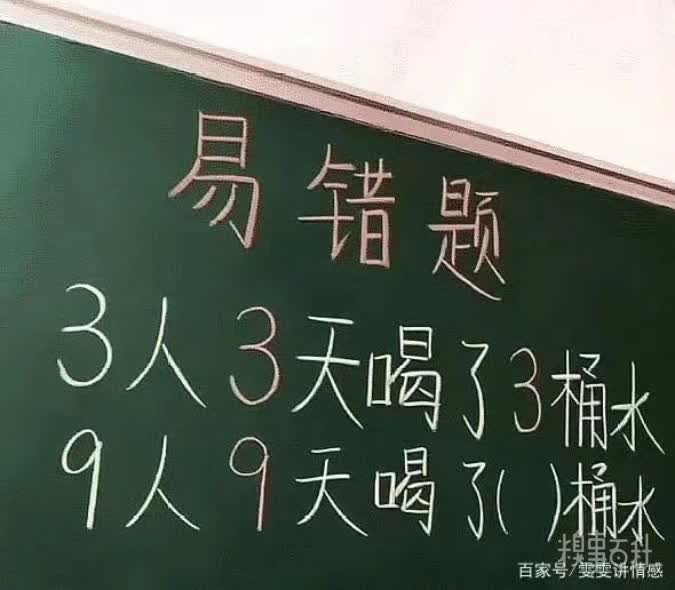 易错题
3人3天喝了3桶水
9人9天喝了( )桶水
糗事百科
百家号/雯雯讲情感